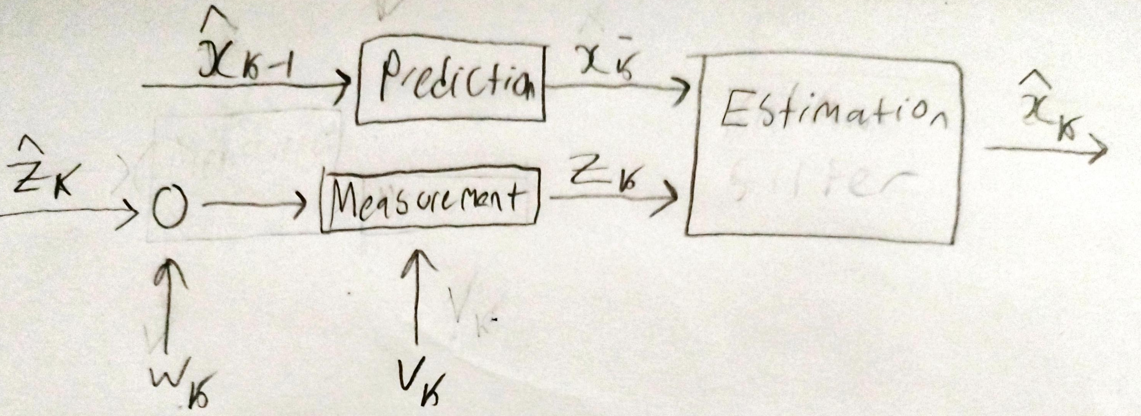 x̂ₖ₋₁
Prediction
xₖ⁻
Estimation
x̂ₖ
ẑₖ
Measurement
zₖ
filter
wₖ
vₖ
vₖ